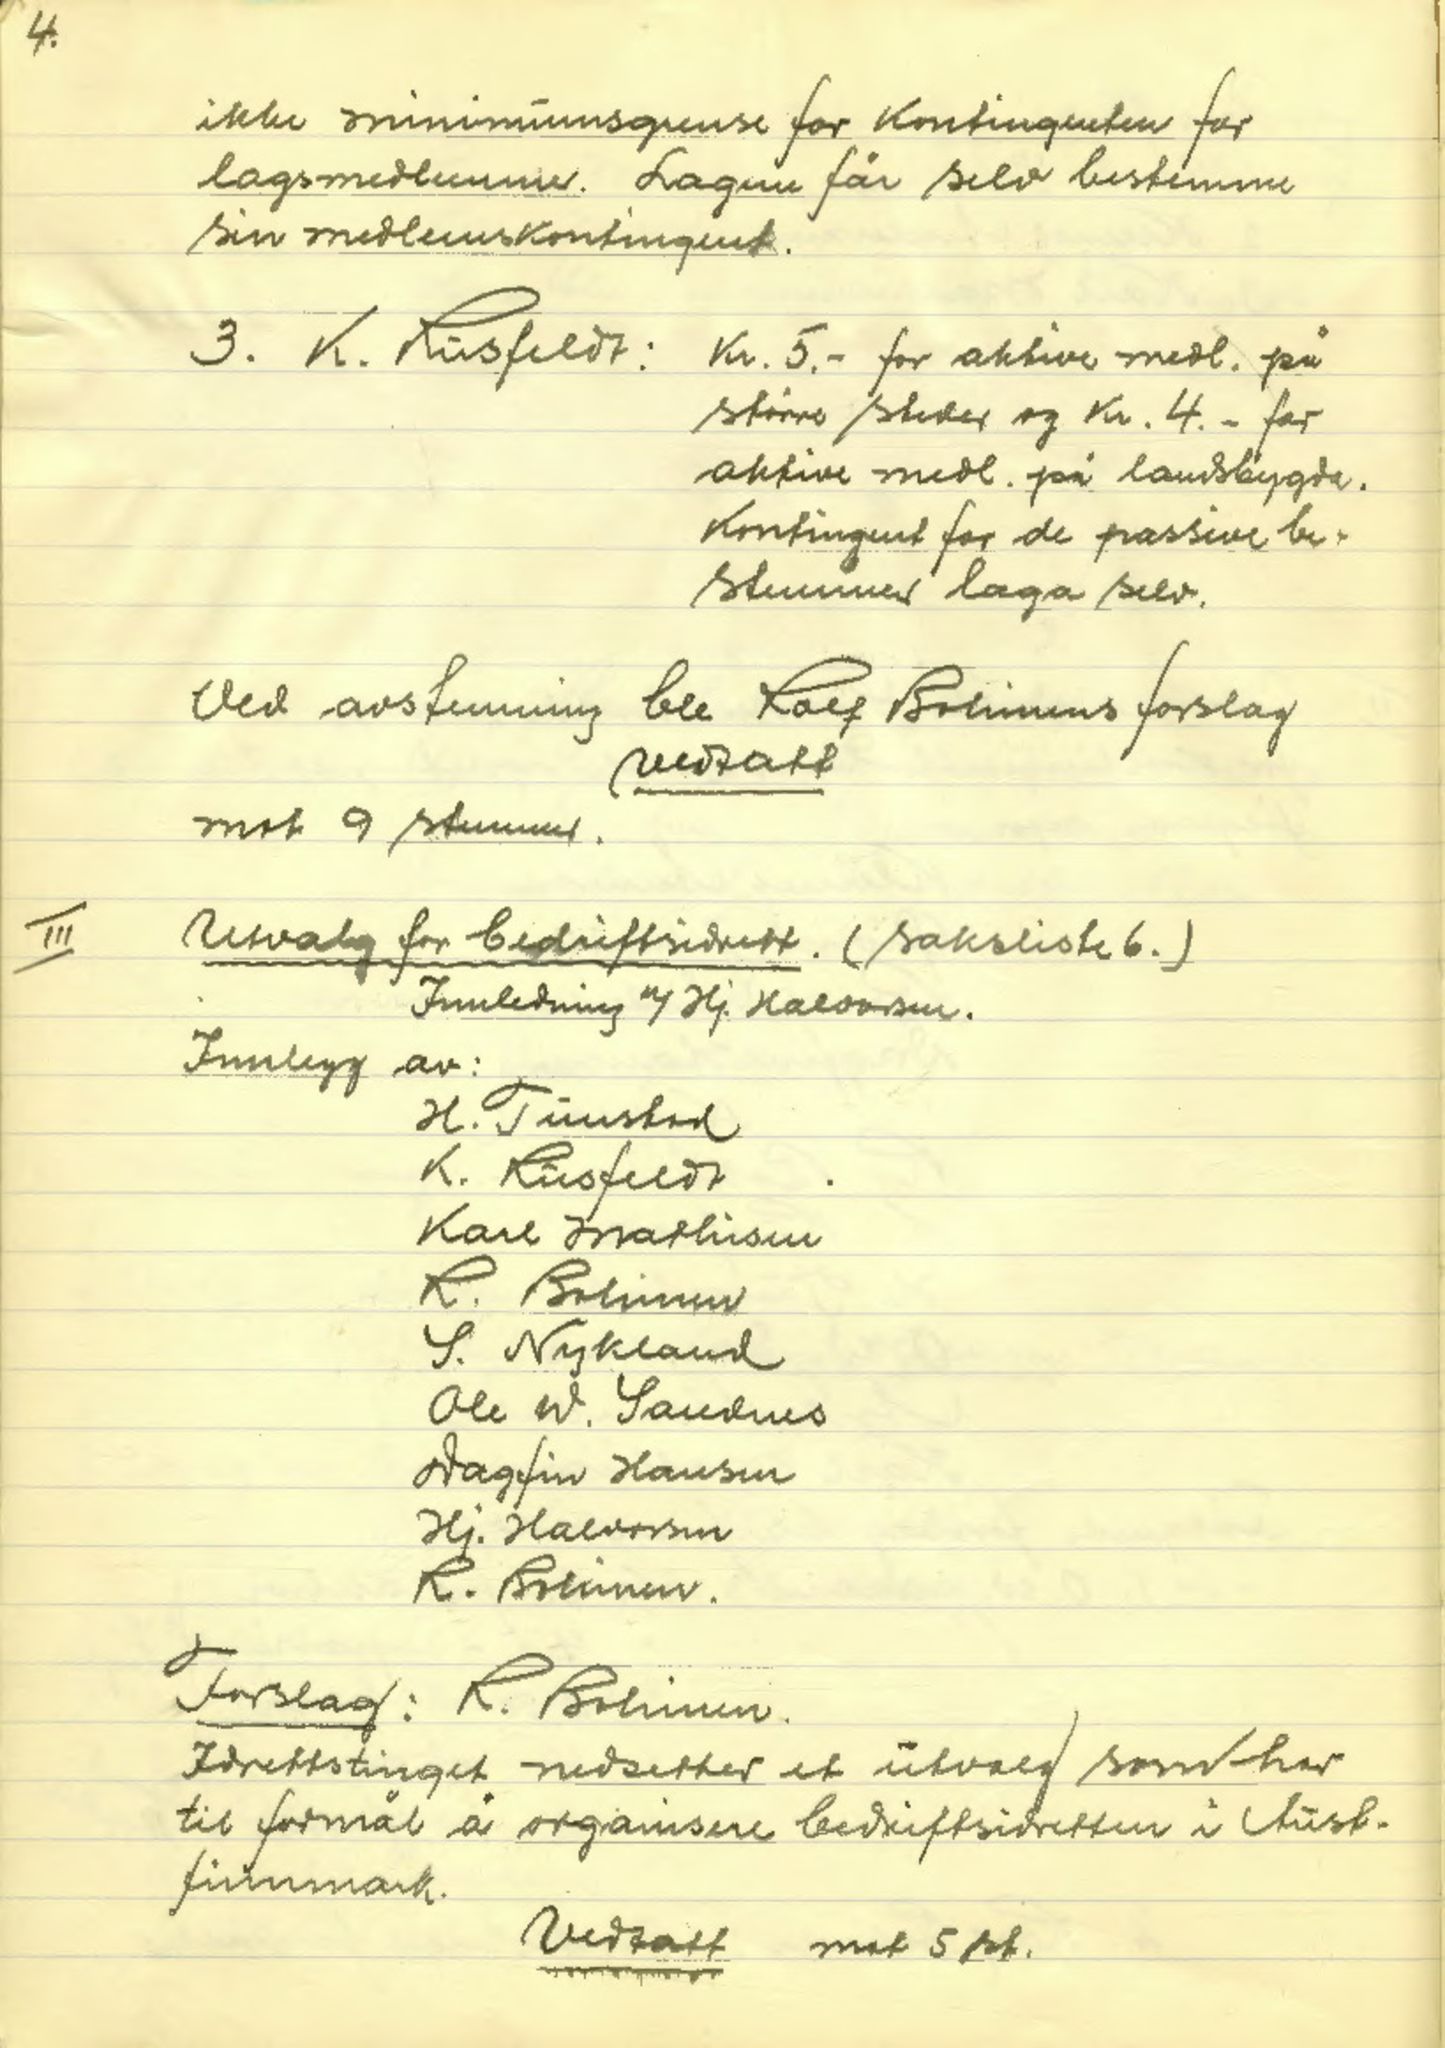 4.
ikke minimumsgrense for kontingenten for
lagsmedlemmer. Lagene får selv bestemme
sin medlemskontingent.
3. K. Rüsfeldt: Kr. 5.- for aktive medl. på
större steder og Kr. 4.- for
aktive medl. på landsbygda.
Kontingent for de passive be-
stemmer laga selv.
Ved avstemning ble Rolf Bohinens forslag
vedtatt
mot 9 stemmer.
III Utvalg for bedriftsidrett. (saksliste 6.)
Innledning v/ Hj. Halvorsen.
Innlegg av:
H. Tunstad
K. Rüsfeldt
Karl Mathisen
R. Bohinen
S. Nykland
Ole W. Sandnes
Dagfin Hansen
Hj. Halvorsen
R. Bohinen.
Forslag: R. Bohinen.
Idrettstinget nedsetter et ütvalg som har
til formål å organisere bedriftsidretten i Aüst-
finnmark.
Vedtatt mot 5 st.